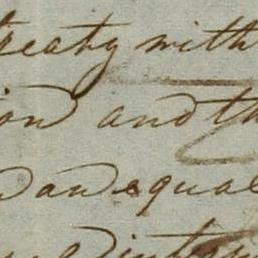 treaty with
ion and th
d an equal